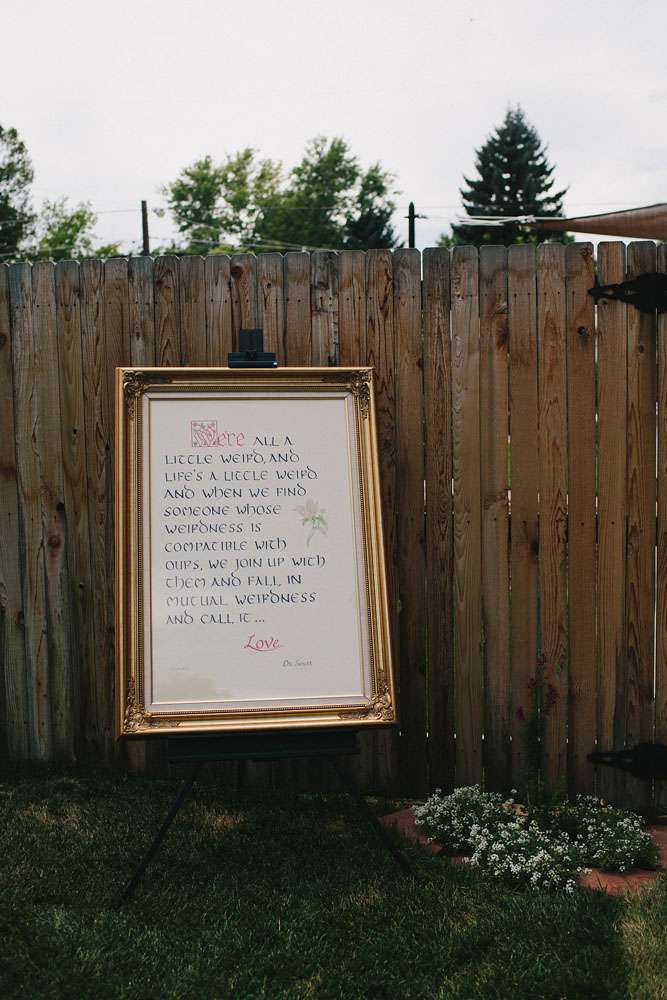 We're ALL A
LITTLE WEIRD, AND
LIFE'S A LITTLE WEIRD
AND WHEN WE FIND
SOMEONE WHOSE
WEIRDNESS IS
COMPATIBLE WITH
OURS, WE JOIN UP WITH
THEM AND FALL IN
MUTUAL WEIRDNESS
AND CALL IT...
Love